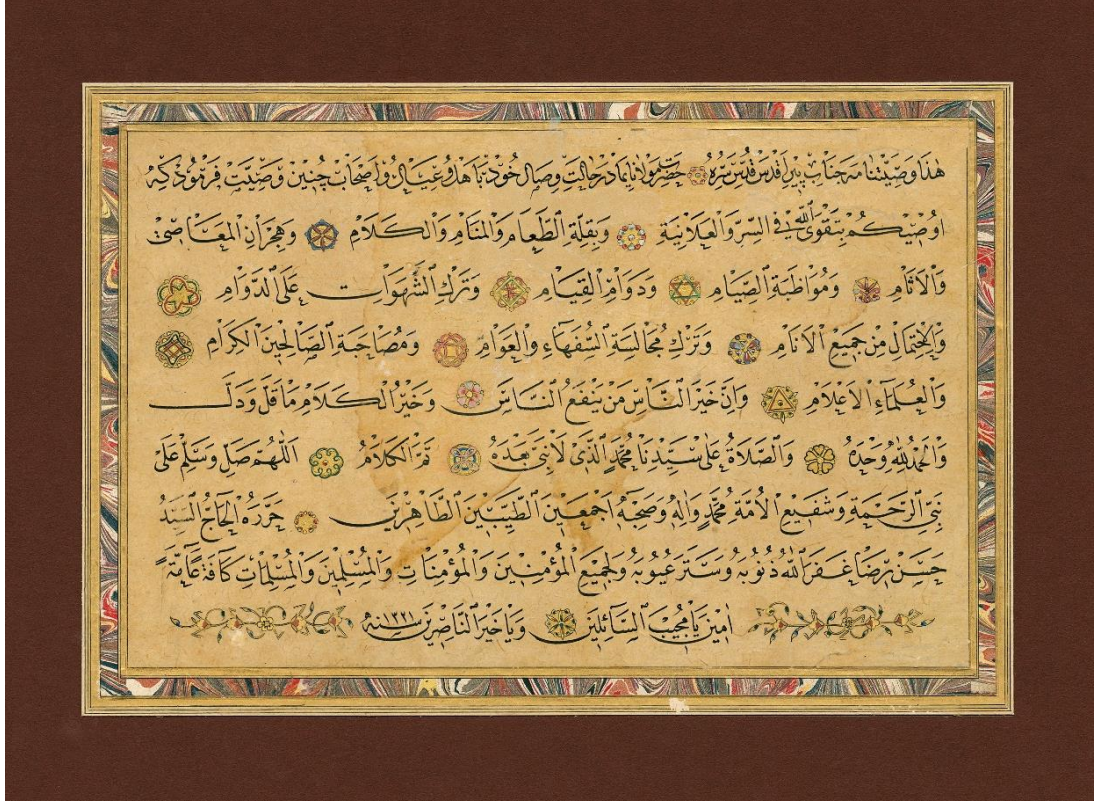 هٰذَا وَصِيَّتْنَامَهٔ جَنَابِ پِيرِ اَقْدَسْ قُدِّسَ سِرُّهُ حَضْرَتِ مَوْلَانَا يِمَا دَرْ حَالَتِ وِصَالِ خُودْ بَاهْلُ وعَيَالُ واَصْحَابْ چُنِينْ وَصِيَّتْ فَرْمُودْ كِهْ
اُوصِيكُمْ بِتَقْوَى اللّٰهِ فِى السِّرِّ وَالْعَلَانِيَةِ وَبِقِلَّةِ الطَّعَامِ وَالْمَنَامِ وَالْكَلَامِ وَهِجْرَانِ الْمَعَاصِى
وَالْاٰثَامِ وَمُوَاظَبَةِ الصِّيَامِ وَدَوَامِ الْقِيَامِ وَتَرْكِ الشَّهَوَاتِ عَلَى الدَّوَامِ
وَالْاِحْتِمَالِ مِنْ جَمِيعِ الْاَنَامِ وَتَرْكِ مُجَالَسَةِ السُّفَهَاءِ وَالْعَوَامِ وَمُصَاحَبَةِ الصَّالِحِينَ الْكِرَامِ
وَالْعُلَمَاءِ الْاَعْلَامِ وَاِنَّ خَيْرَ النَّاسِ مَنْ يَنْفَعُ النَّاسَ وَخَيْرُ الْكَلَامِ مَا قَلَّ وَدَلَّ
وَالْحَمْدُ لِلّٰهِ وَحْدَهُ وَالصَّلَاةُ عَلٰى سَيِّدِنَا مُحَمَّدٍ الَّذِى لَا نَبِىَّ بَعْدَهُ تَمَّ الْكَلَامُ اَللّٰهُمَّ صَلِّ وَسَلِّمْ عَلٰى
نَبِىِّ الرَّحْمَةِ وَشَفِيعِ الْاُمَّةِ مُحَمَّدٍ وَاٰلِهِ وَصَحْبِهِ اَجْمَعِينَ الطَّيِّبِينَ الطَّاهِرِينَ حَرَّرَهُ الْحَاجُّ السَّيِّدُ
حَسَنْ رِضَا غَفَرَ اللّٰهُ ذُنُوبَهُ وَسَتَرَ عُيُوبَهُ وَلِجَمِيعِ الْمُؤْمِنِينَ وَالْمُؤْمِنَاتِ وَالْمُسْلِمِينَ وَالْمُسْلِمَاتِ كَافَّةً عَامَّةً
اٰمِينَ يَا مُجِيبَ السَّائِلِينَ وَيَا خَيْرَ النَّاصِرِينَ سنه ١٣٢١